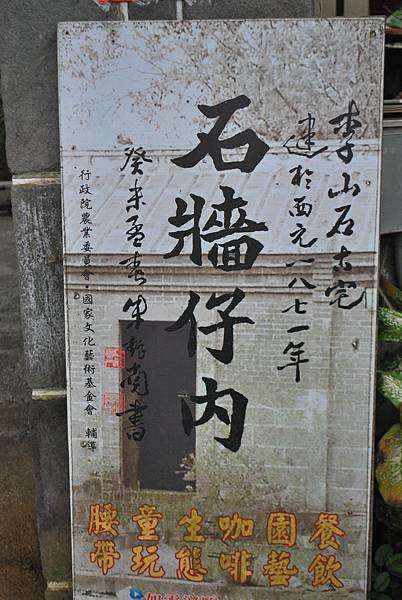 李山石古宅
建於西元一八七一年
石牆仔內
癸未孟春朱振南書
行政院農業委員會・國家文化藝術基金會 輔導
餐飲
園藝
咖啡
生態
童玩
腰帶